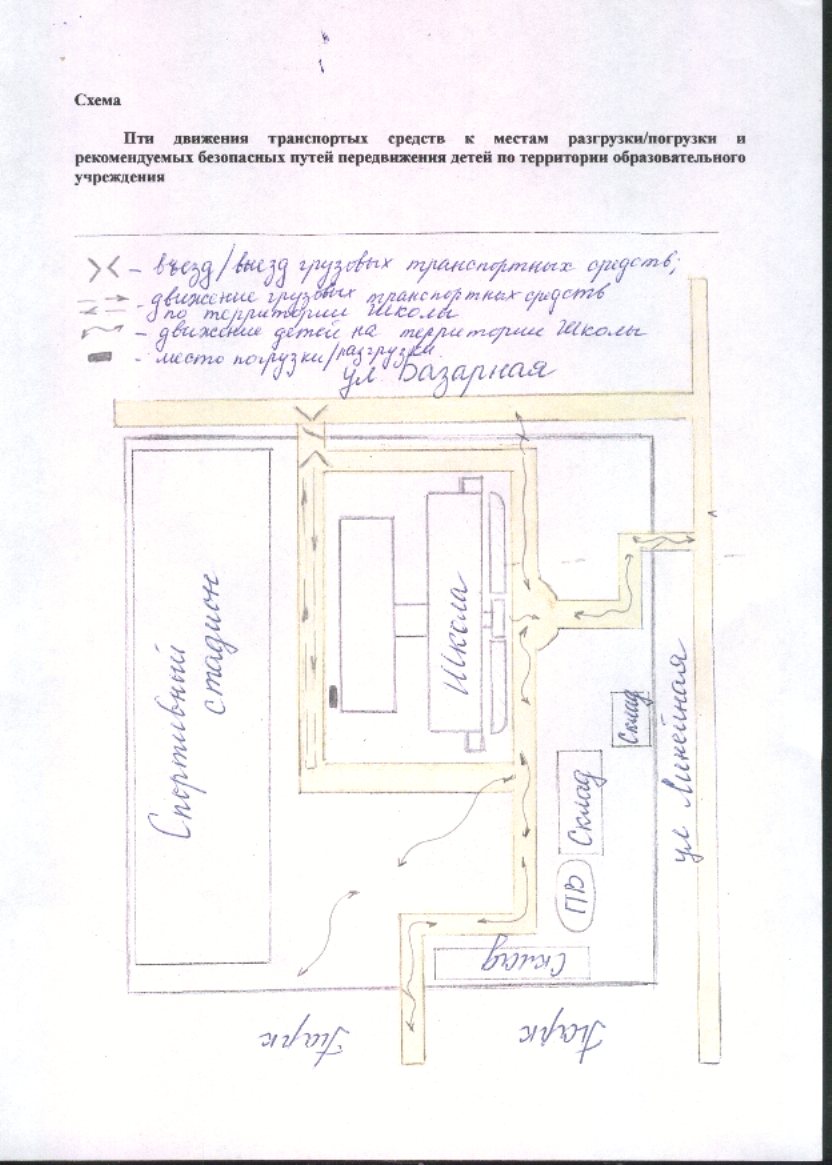 Схема
Пти движения транспортых средств к местам разгрузки/погрузки и
рекомендуемых безопасных путей передвижения детей по территории образовательного
учреждения
- въезд/выезд грузовых транспортных средств;
- движение грузовых транспортных средств
по территории Школы
- движение детей на территории Школы
- место погрузки/разгрузки.
ул Базарная
Спортивный
стадион
Школа
Склад
Склад
ПВ
Склад
ул Линейная
Парк
Парк